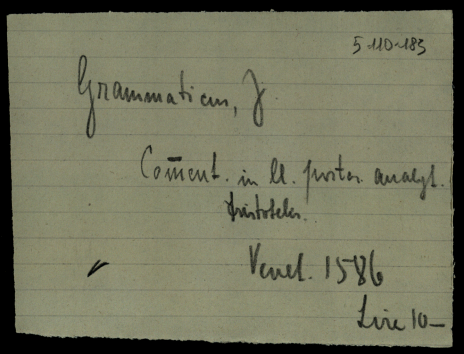 5-110-183
Grammaticus, J
Com̄ent. in ll. poster. analyt.
Aristoteles.
Venet. 1586
Lire 10—